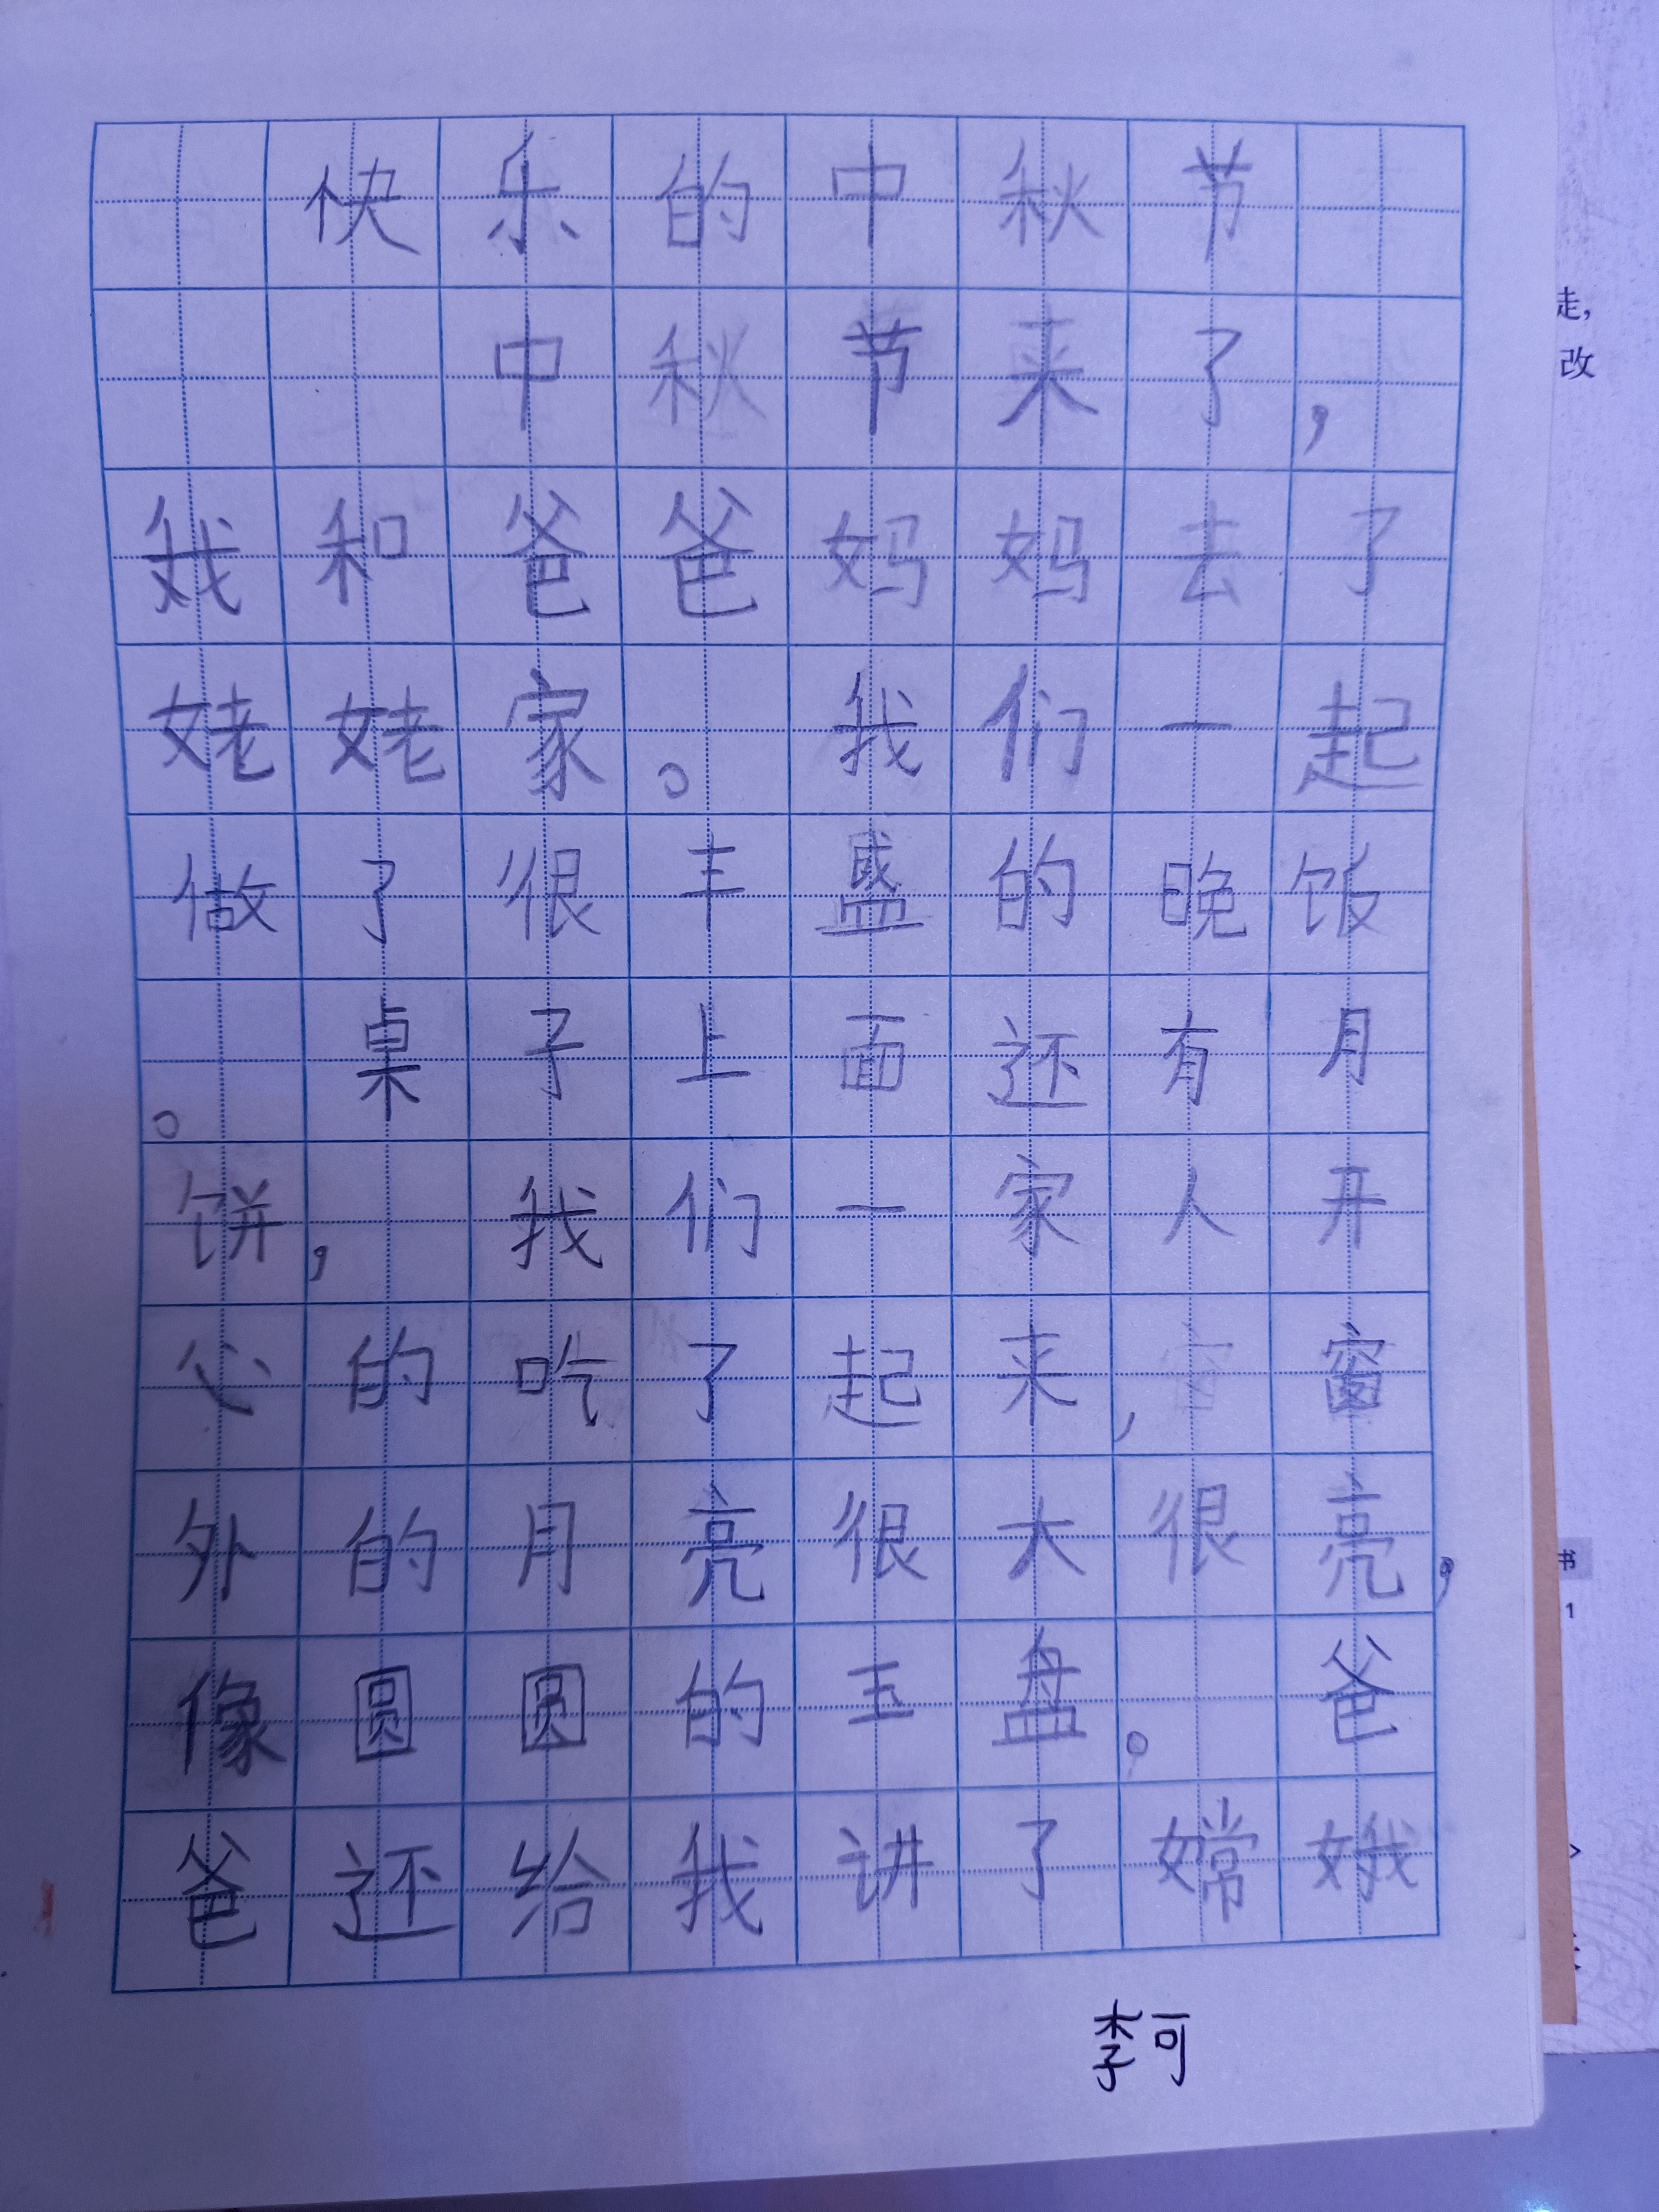 快乐的中秋节
中秋节来了，
我和爸爸妈妈去了
姥姥家。我们一起
做了很丰盛的晚饭
。桌子上面还有月
饼，我们一家人开
心的吃了起来，窗
外的月亮很大很亮，
像圆圆的玉盘。爸
爸还给我讲了嫦娥
李可
走，
改
书
1